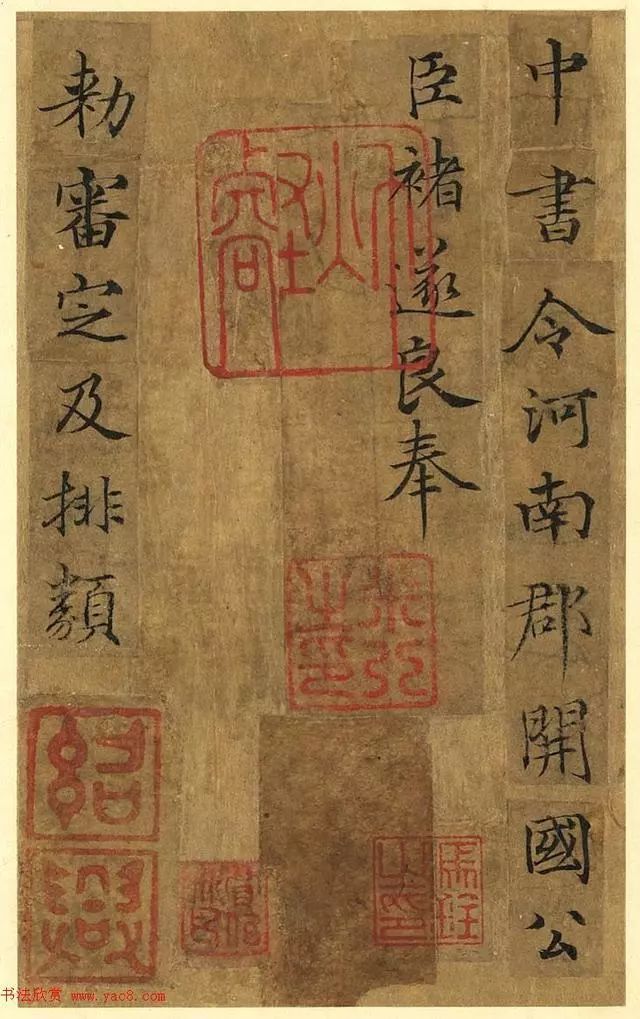 中書令河南郡開國公
臣褚遂良奉
勑審定及排類
紹
興
書法欣赏 www.yac8.com